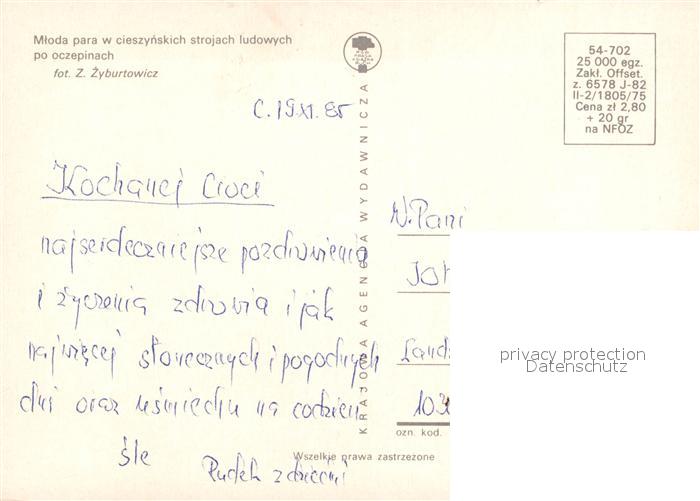 Młoda para w cieszyńskich strojach ludowych
po oczepinach
fot. Z. Żyburtowicz
54-702
25 000 egz.
Zakł. Offset.
z. 6578 J-82
II-2/1805/75
Cena zł 2,80
+ 20 gr
na NFOZ
C. 19.XI.85
Kochanej Cioci
najserdeczniejsze pozdrowienia
i życzenia zdrowia i jak
najwięcej słonecznych i pogodnych
dni oraz uśmiechu na codzień
śle
z dziećmi
KRAJOWA AGENCJA WYDAWNICZA
W.Pani
Joh
Lands
103
ozn. kod.
Wszelkie prawa zastrzeżone
privacy protection
Datenschutz